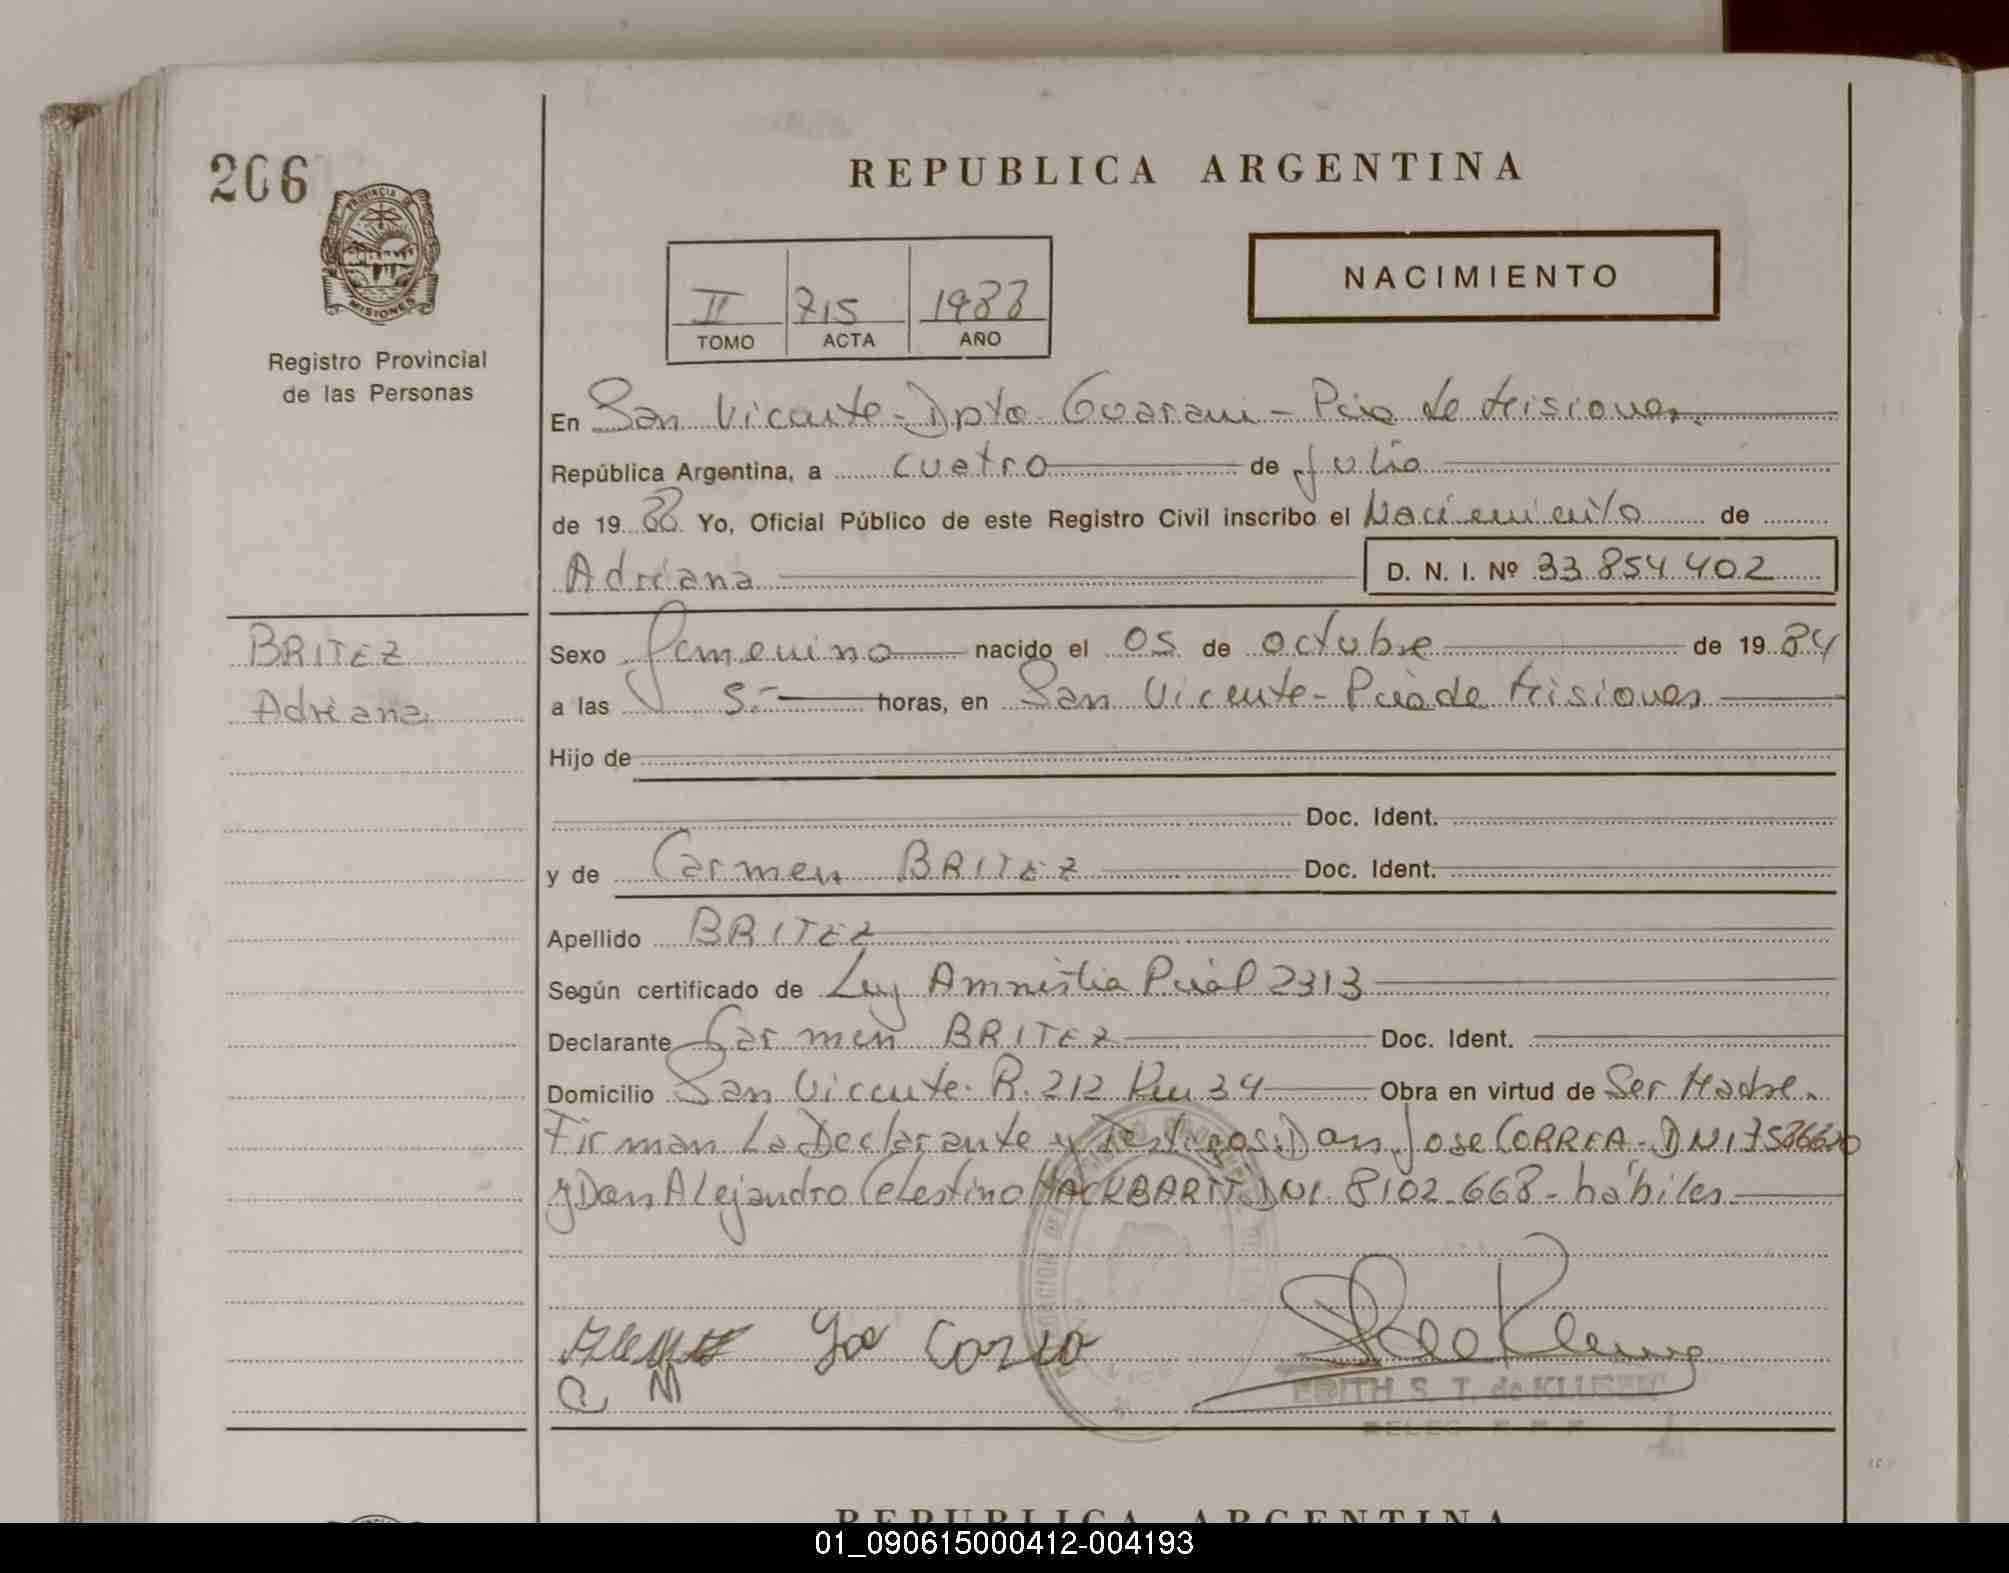 206
PROVINCIA DE
MISIONES
Registro Provincial
de las Personas
REPUBLICA ARGENTINA
II 715 1988
TOMO ACTA AÑO
NACIMIENTO
En San Vicente - Dpto. Guarani - Pcia de Misiones.
República Argentina, a cuatro de Julio
de 19 88 Yo, Oficial Público de este Registro Civil inscribo el Nacimiento de
Adriana D. N. I. Nº 33.854.402
BRITEZ
Adriana
Sexo femenino nacido el 05 de octubre de 19 84
a las 5.- horas, en San Vicente - Pcia de Misiones
Hijo de
Doc. Ident.
y de Carmen BRITEZ Doc. Ident.
Apellido BRITEZ
Según certificado de Ley Amnistia Pcial 2313
Declarante Carmen BRITEZ Doc. Ident.
Domicilio San Vicente. R. 212 Km 34 Obra en virtud de Ser Madre.
Firman La Declarante y Testigos: Don Jose CORREA - DNI
y Don Alejandro Celestino HACKBARTT DNI. 8102.668 - hábiles
Jose Correa
C M
EDITH S. T. de KLUSEN
REPUBLICA ARGENTINA
01_090615000412-004193